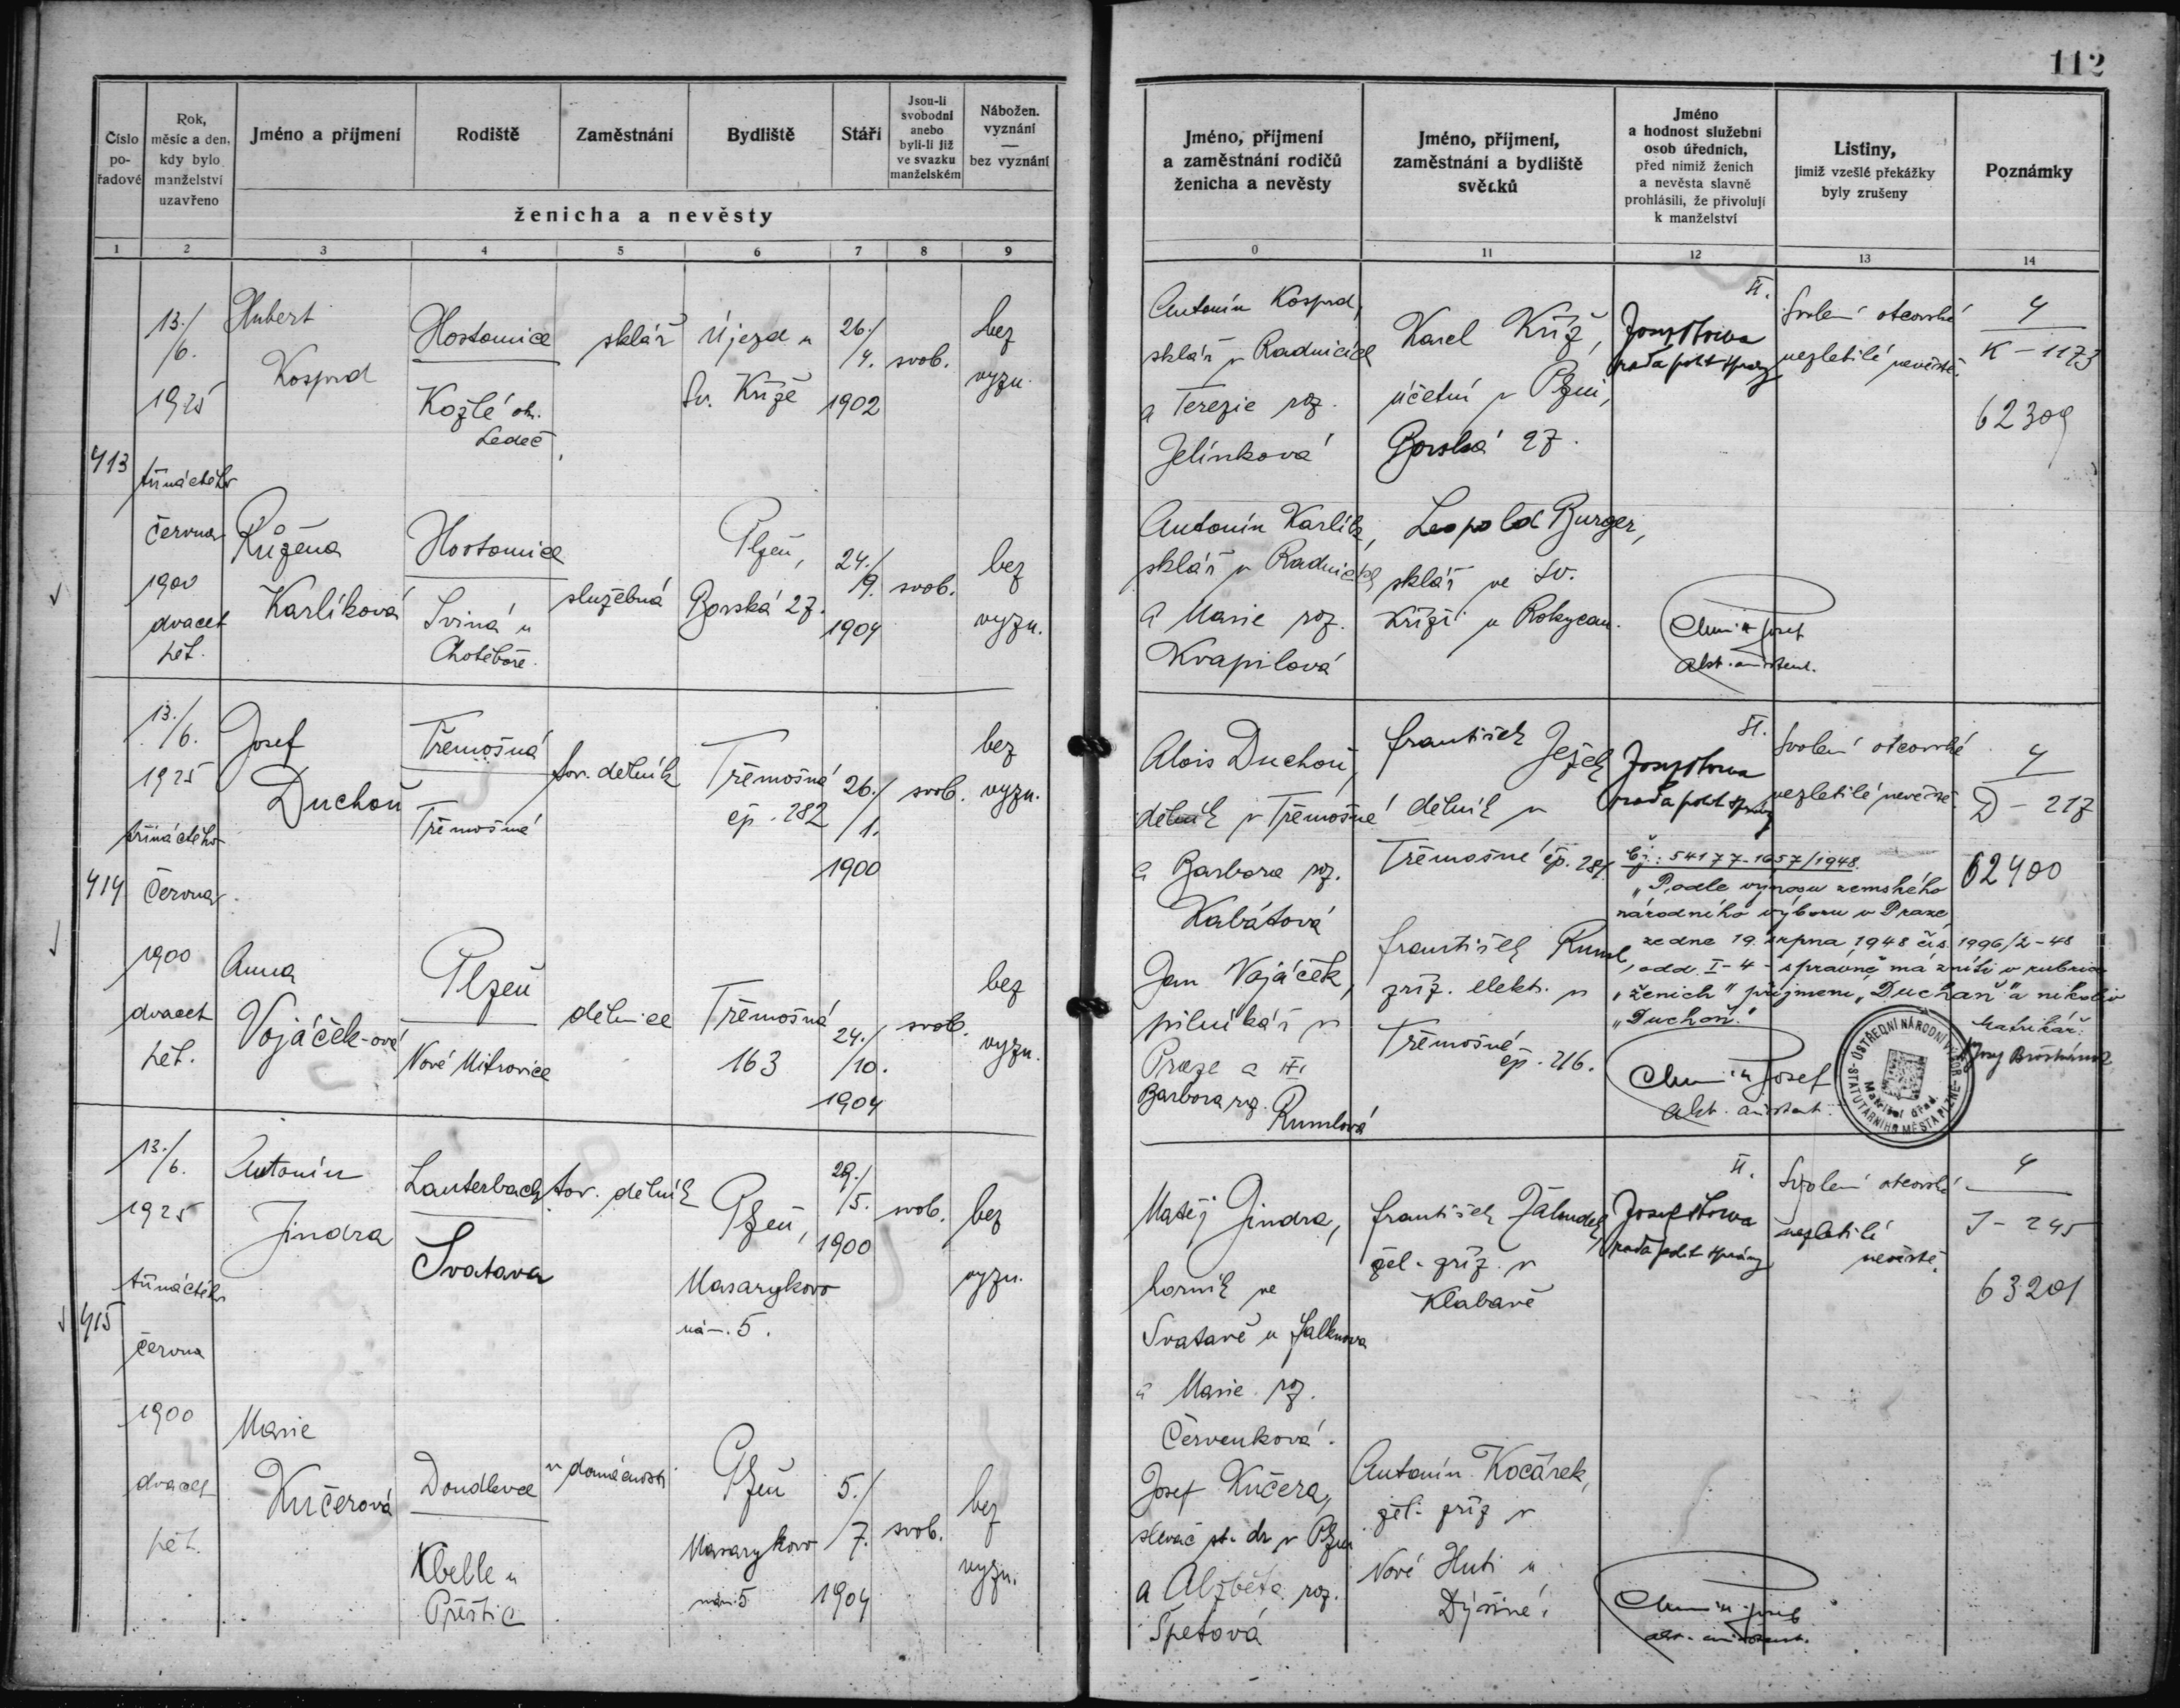 112
Číslo pořadové
Rok, měsíc a den, kdy bylo manželství uzavřeno
Jméno a příjmení
Rodiště
Zaměstnání
Bydliště
Stáří
Jsou-li svobodni anebo byli-li již ve svazku manželském
Nábožen. vyznání — bez vyznání
ženicha a nevěsty
Jméno, příjmení a zaměstnání rodičů ženicha a nevěsty
Jméno, příjmení, zaměstnání a bydliště svědků
Jméno a hodnost služební osob úředních, před nimiž ženich a nevěsta slavně prohlásili, že přivolují k manželství
Listiny, jimiž vzešlé překážky byly zrušeny
Poznámky
1 2 3 4 5 6 7 8 9
0 11 12 13 14
413
13./6.
1925
třináctého
června
1900
dvacet
pět.
Hubert
Kosprd
Hostomice
Kozlé ok.
Ledeč
sklář
Újezd u
Sv. Kříže
26./
4.
1902
svob.
bez
vyzn.
Růžena
Karlíková
Hostomice
Sviná u
Chotěboře.
služebná
Plzeň,
Borská 27.
24./
9.
1904
svob.
bez
vyzn.
Antonín Kosprd,
sklář v Radnicích
a Terezie roz.
Jelínková
Antonín Karlík,
sklář v Radnicích
a Marie roz.
Kvapilová
Karel Kříž,
účetní v Plzni,
Borská 27.
Leopold Burger,
sklář ve Sv.
Kříži u Rokycan.
II.
rada polit. správy
Josef
akt. assistent.
Svolení otcovské
nezletilé nevěstě.
4
K - 1173
62309
414
13./6.
1925
třináctého
června
1900
dvacet
pět.
Josef
Duchoň
Třemošná
Třemošná
tov. dělník
Třemošná
čp. 282
26./
1.
1900
svob.
bez
vyzn.
Anna
Vojáček-ová
Plzeň
Nové Mitrovice
dělnice
Třemošná
163
24./
10.
1904
svob.
bez
vyzn.
Alois Duchoň,
dělník v Třemošné
a Barbora roz.
Kabátová
Jan Vojáček,
pilníkář v
Praze a
Barbora roz.
Rumlová
František Ježek
dělník v
Třemošné čp. 281.
František Ruml,
zříz. elektr. v
Třemošné
čp. 216.
II.
rada polit. správy
Svolení otcovské
nezletilé nevěstě.
Čj.: 54177-1657/1948.
"Podle výnosu zemského
národního výboru v Praze
ze dne 19. srpna 1948 čís. 1996/2-48
odd. I-4 - správně má zníti v rubrice
"ženich" příjmení "Duchaň" a nikoliv
"Duchoň."
Matrikář:
Josef
akt. assistent.
ÚSTŘEDNÍ NÁRODNÍ VÝBOR
STATUTÁRNÍHO MĚSTA PLZNĚ
Matriční úřad.
4
D - 217
62400
415
13./6.
1925
třináctého
června
1900
dvacet
pět.
Antonín
Jindra
Lauterbach
Svatava
tov. dělník
Plzeň,
Masarykovo
nám. 5.
29./
5.
1900
svob.
bez
vyzn.
Marie
Kučerová
Doudlevce
Kbelle u
Přeštic
v domácnosti
Plzeň
Masarykovo
nám. 5
5./
7.
1904
svob.
bez
vyzn.
Matěj Jindra,
horník ve
Svatavě u Falknova
a Marie roz.
Červenková.
Josef Kučera,
slevač st. dr. v Plzni
a Alžběta roz.
Špetová
František Žáludek,
žel. zříz. v
Klabavě
Antonín Kočárek,
žel. zříz. v
Nové Huti u
Dýšiné.
II.
rada polit. správy
Josef
akt. assistent.
Svolení otcovské
nezletilé
nevěstě.
4
J - 245
63201